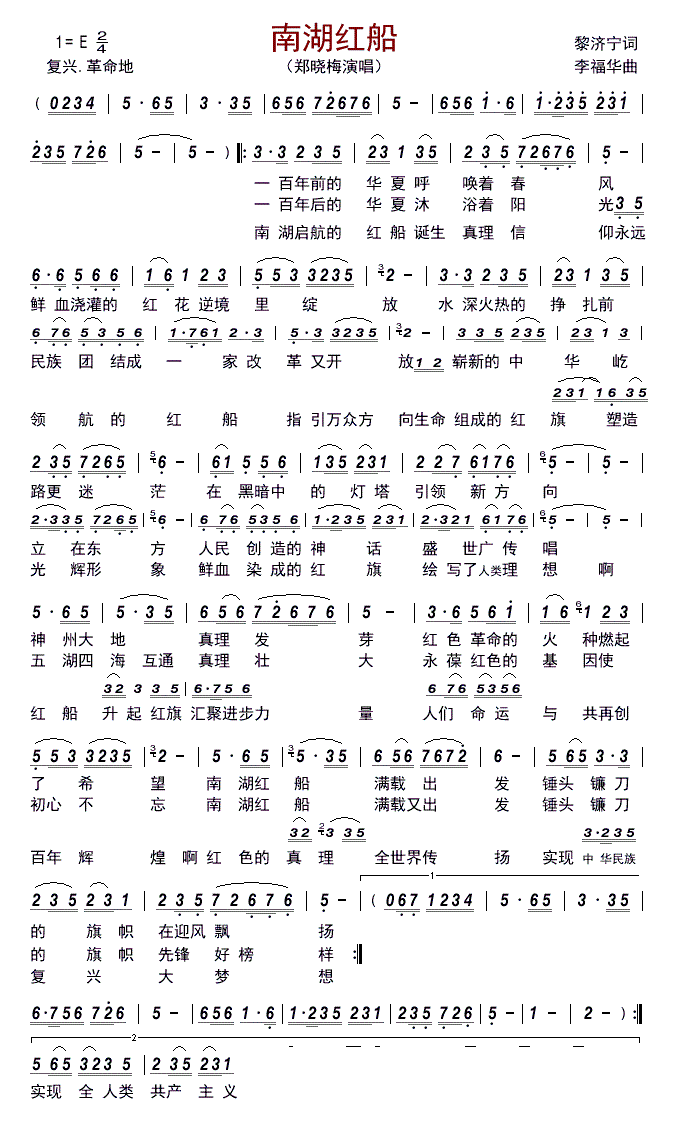 南湖红船
1= E 2/4
黎济宁词
复兴.革命地
（郑晓梅演唱）
李福华曲
( 0234 | 5 · 65 | 3 · 35 | 6542 72676 | 5 - | 656 1·6 | 1·235 231 |
235 726 | 5 - | 5 - ) ‖: 3·3 235 | 23 1 35 | 235 72676 | 5 -
一 百年前的 华 夏 呼 唤着 春 风
一 百年后的 华 夏 沐 浴着 阳 光 35
南 湖启航的 红 船 诞生 真理 信 仰永远
6·6 566 | 16 123 | 553 3235 | 32 - | 3·3 235 | 231 35
鲜 血浇灌的 红 花 逆境 里 绽 放 水 深火热的 挣 扎前
6 76 5356 | 1·761 2·3 | 5·3 3235 | 32 - | 335 235 | 231 13
民族 团 结成 一 家 改 革 又开 放 12 崭新的 中 华 屹
231 16 35
领 航 的 红 船 指 引万众方 向生命 组成的 红 旗 塑造
235 7265 | 56 - | 61 556 | 135 231 | 227 6176 | 65 - | 5 -
路更 迷 茫 在 黑暗中 的 灯 塔 引领 新 方 向
2·335 7265 | 56 - | 6 76 5356 | 1·235 231 | 2·321 6176 | 65 - | 5 -
立 在东 方 人民 创 造的 神 话 盛 世广 传 唱
光 辉形 象 鲜血 染 成的 红 旗 绘 写了人类理 想 啊
5·65 | 5·35 | 656 72676 | 5 - | 3·6 561 | 16 6123
神 州大 地 真理 发 芽 红 色 革命的 火 种燃起
五 湖四 海 互通 真理 壮 大 永 葆 红色的 基 因使
32 3 35 | 6·756 6 76 5356
红 船 升 起 红旗 汇聚进步力 量 人们 命 运 与 共再创
553 3235 | 32 - | 5·65 | 35·35 | 656 7672 | 5 - | 565 3·3
了 希 望 南 湖红 船 满载 出 发 锤头 镰 刀
初心 不 忘 南 湖红 船 满载又出 发 锤头 镰 刀
32 23 35 3·235
百年 辉 煌 啊 红 色的 真 理 全世界传 扬 实现 中 华民族
1
235 231 | 235 72676 | 5 - | ( 067 1234 | 5·65 | 3·35
的 旗 帜 在迎风 飘 扬
的 旗 帜 先锋 好 榜 样 :‖
复 兴 大 梦 想
6·756 726 | 5 - | 656 1·6 | 1·235 231 | 235 726 | 5 - | 1 - | 2 - ) :‖
2
565 323 5 | 235 231
实现 全 人类 共产 主 义